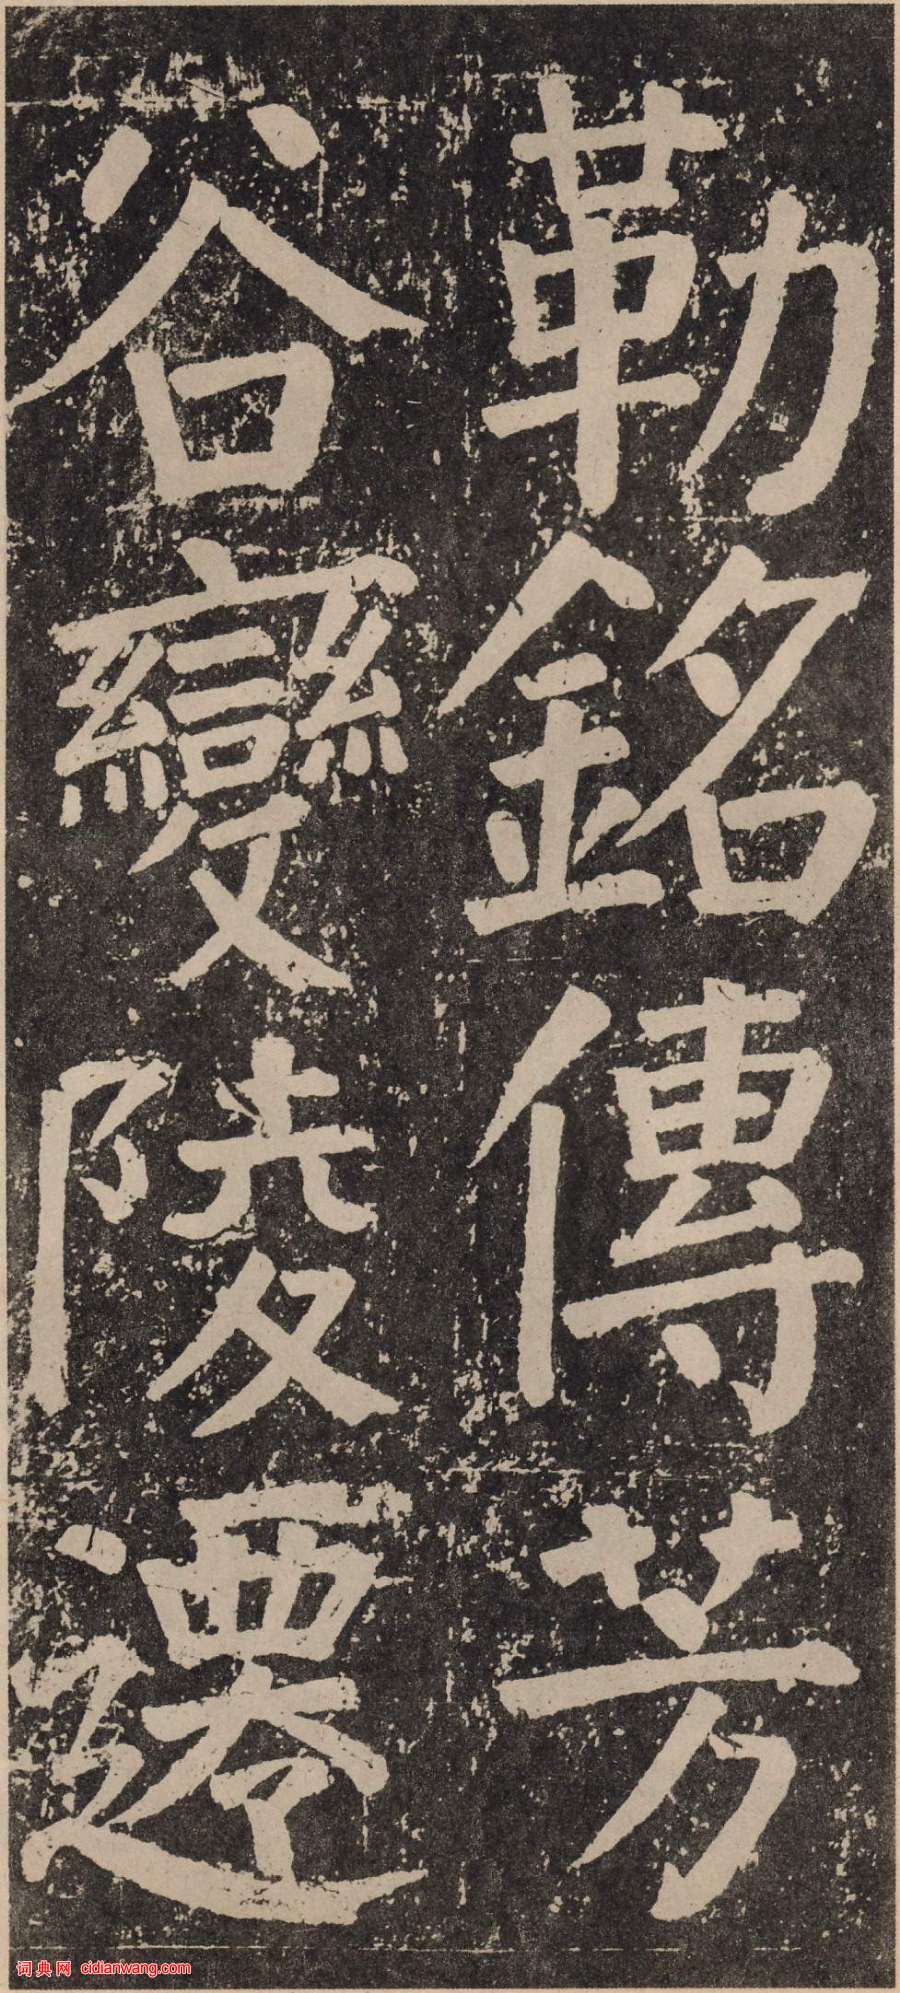 勒銘傳芳
谷變陵遷
词典网 cidianwang.com